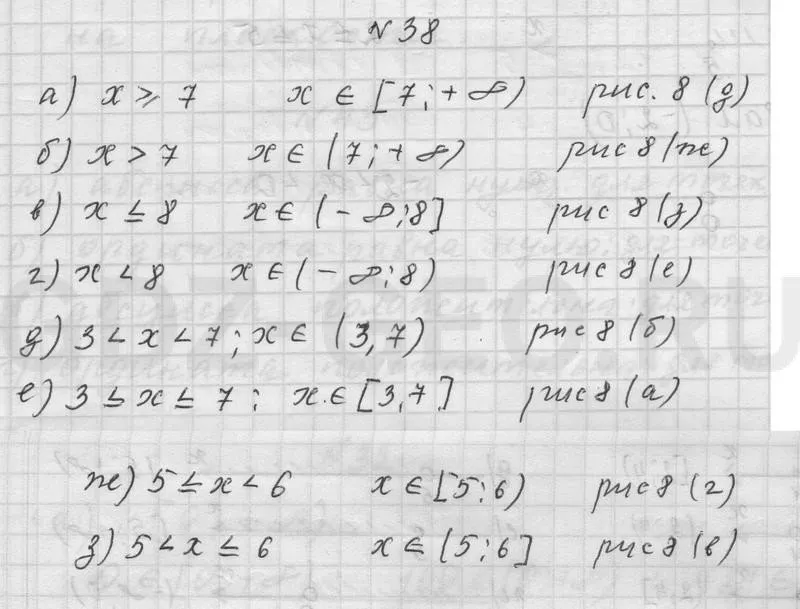 № 38
а) x ⩾ 7 x ∈ [7; +∞) рис. 8 (д)
б) x > 7 x ∈ (7; +∞) рис 8 (ж)
в) x ≤ 8 x ∈ (-∞; 8] рис 8 (з)
г) x < 8 x ∈ (-∞; 8) рис 8 (е)
д) 3 < x < 7; x ∈ (3, 7) рис 8 (б)
е) 3 ≤ x ≤ 7; x ∈ [3, 7] рис 8 (а)
ж) 5 ≤ x < 6 x ∈ [5; 6) рис 8 (г)
з) 5 < x ≤ 6 x ∈ (5; 6] рис 8 (в)